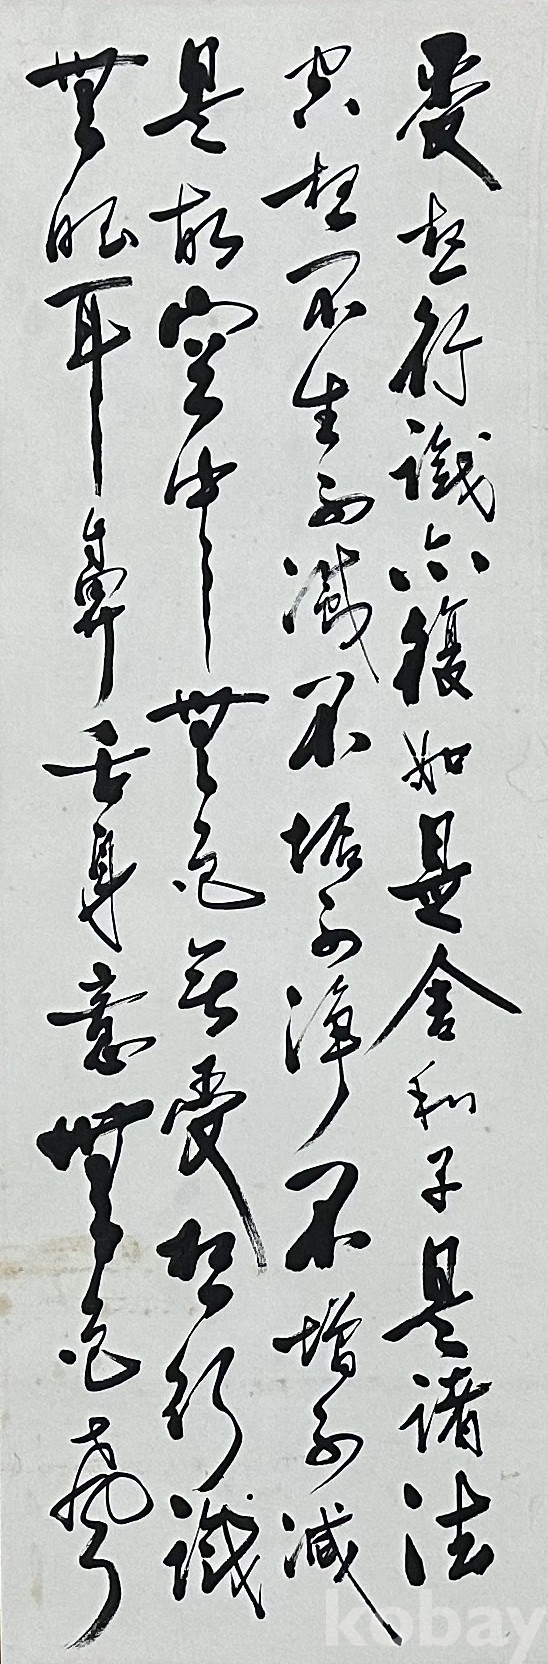 受想行識亦復如是舍利子是諸法
空相不生不滅不垢不淨不增不減
是故空中無色無受想行識
無眼耳鼻舌身意無色聲
kobay